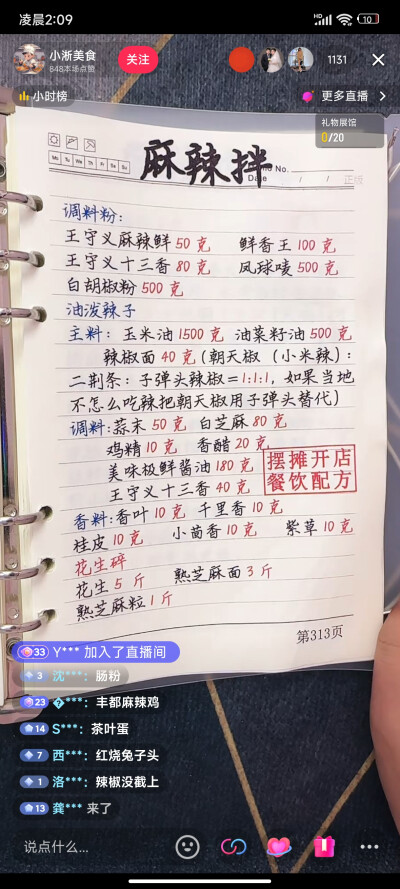 凌晨2:09
HD
10
小淅美食
848本场点赞
关注
1131
小时榜
更多直播
礼物展馆
0/20
Mo Tu We Th Fr Sa Su
麻辣拌
No.
Date / /
正版
调料粉:
王守义麻辣鲜50克 鲜香王100克
王守义十三香80克 凤球唛500克
白胡椒粉500克
油泼辣子
主料: 玉米油1500克 油菜籽油500克
辣椒面40克(朝天椒(小米辣):
二荆条:子弹头辣椒=1:1:1,如果当地
不怎么吃辣把朝天椒用子弹头替代)
调料:蒜末50克 白芝麻80克
鸡精10克 香醋20克
美味极鲜酱油180克
王守义十三香40克
摆摊开店
餐饮配方
香料:香叶10克 千里香10克
桂皮10克 小茴香10克 紫草10克
花生碎
花生5斤 熟芝麻面3斤
熟芝麻粒1斤
第313页
33 Y*** 加入了直播间
3 沈***:肠粉
23 �***:丰都麻辣鸡
14 S***:茶叶蛋
7 西***:红烧兔子头
1 洛***:辣椒没截上
13 龚*** 来了
说点什么...